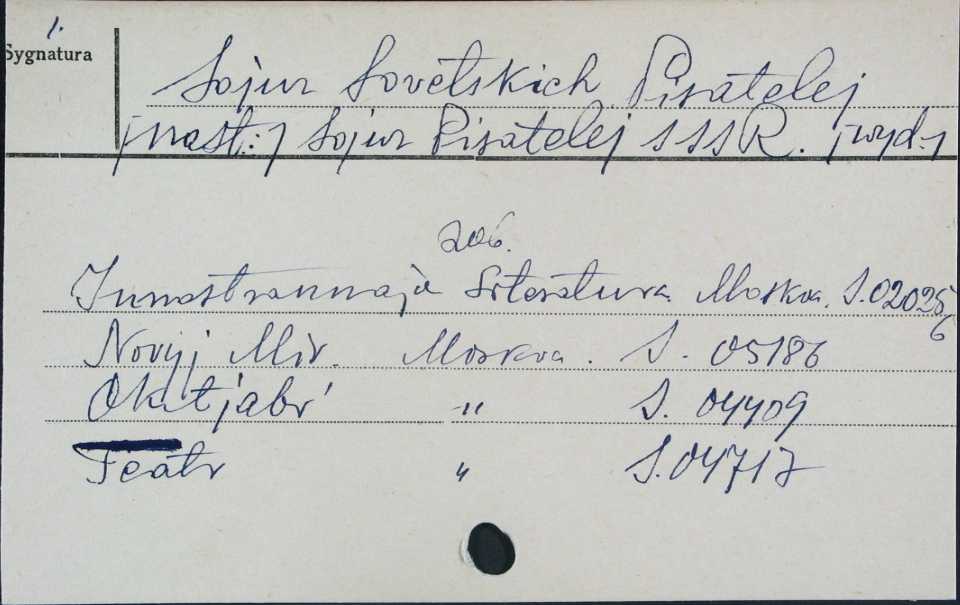 1.
Sygnatura
Sojuz Sovetskich Pisatelej
[nast.:] Sojuz Pisatelej SSSR. [wyd.]
zob.
Innostrannaja Literatura. Moskva. S.02025
6
Novyj Mir. Moskva. S. 05186
Oktjabr' -"- S. 04409
Teatr " S.04717